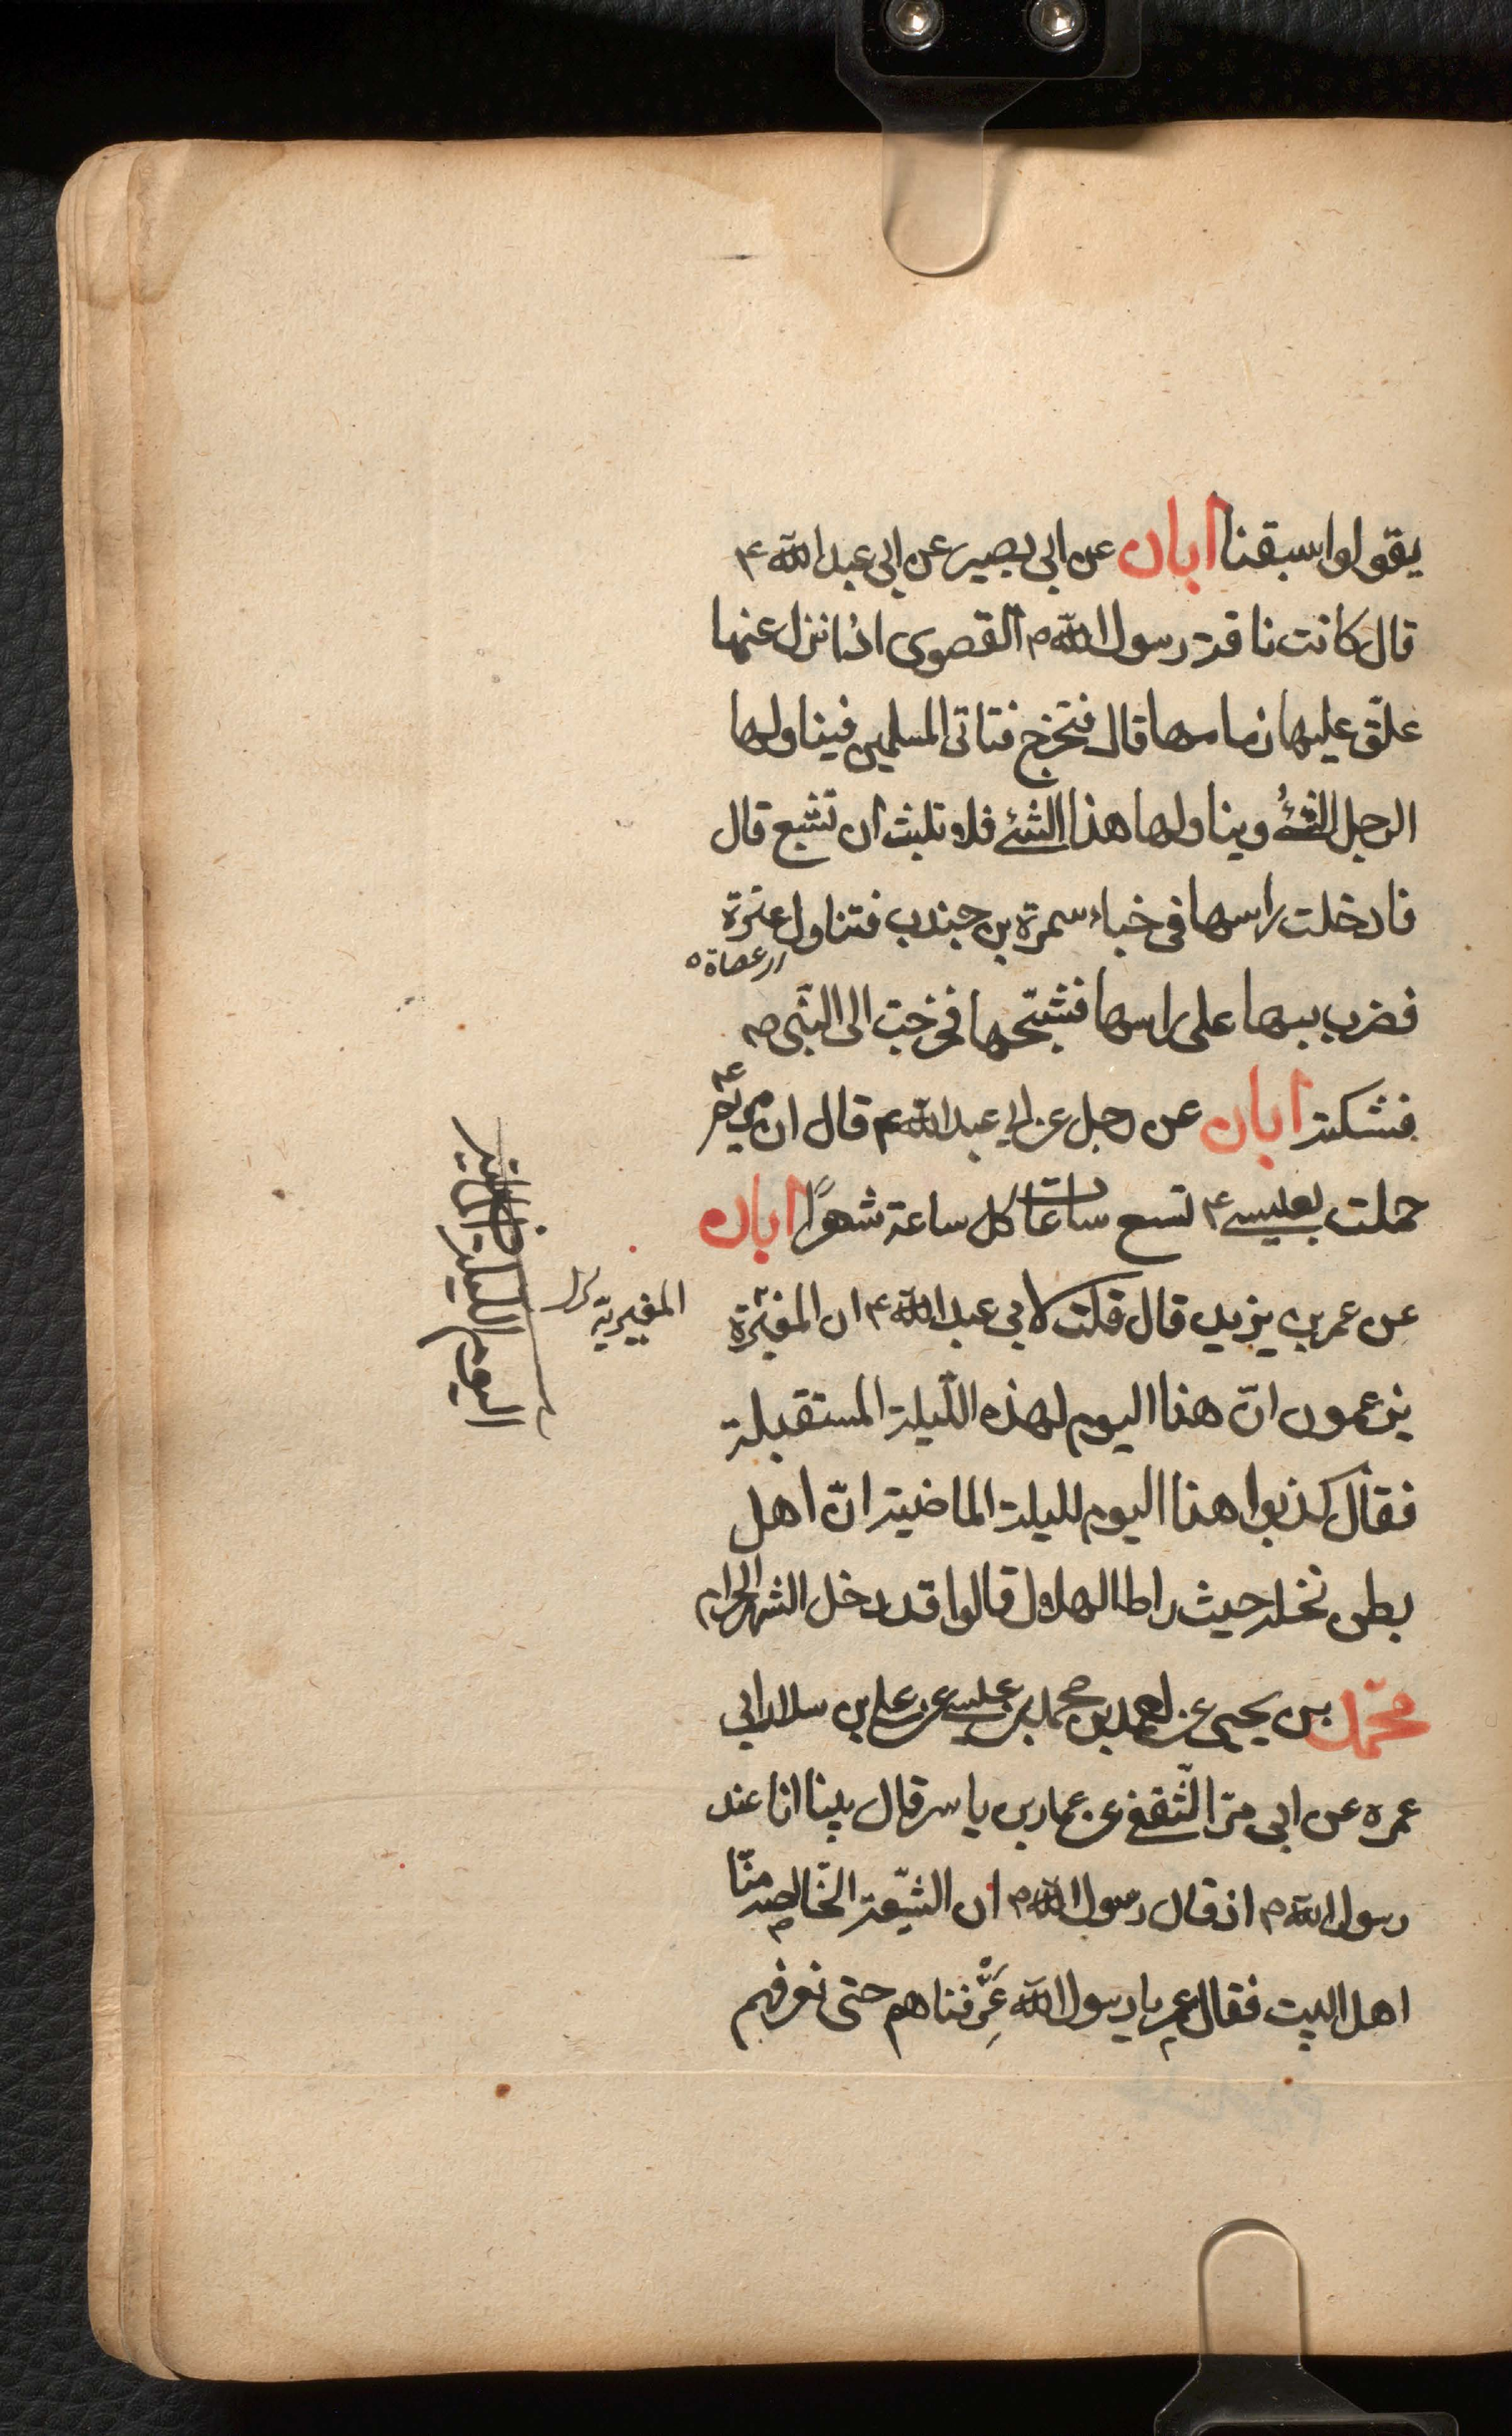 يقولوا سبقنا ابان عن ابى بصير عن ابى عبد الله ع
قال كانت ناقة رسول الله ص القصوى اذا نزل عنها
علّق عليها زمامها قال فتخرج فتاتى المسلمين فيناولها
الرجل الشئ ويناولها هذا الشئ فلا تلبث ان تشبع قال
فادخلت راسها فى خباء سمرة بن جندب فتناول عنزة
فضرب بها على راسها فشجّها فخرجت الى النبى ص
فشكته ابان عن رجل عن ابى عبد الله ع قال ان مريم ع
حملت بعيسى ع تسع ساعات كل ساعة شهرًا ابان
عن عمر بن يزيد قال قلت لابى عبد الله ع ان المغيرة
يزعمون انّ هذا اليوم لهذه اللّيلة المستقبلة
فقال كذبوا هذا اليوم لليلة الماضية انّ اهل
بطن نخلة حيث راوا الهلال قالوا قد دخل الشهر الحرام
محمّد بن يحيى عن احمد بن محمد بن عيسى عن على بن ابى
عمره عن ابى مرّ الثّقفى عن عمار بن ياسر قال بينا انا عند
رسول الله ص اذ قال رسول الله ص ان الشّيعة الخّالصة منّا
اهل البيت فقال عمر يا رسول الله عَرِّفناهم حتى نعرفهم
المغيرية
اليوم الليلة الماضية